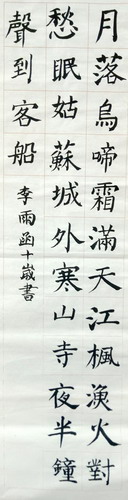 月落烏啼霜滿天江楓漁火對
愁眠姑蘇城外寒山寺夜半鐘
聲到客船
李雨函十歲書